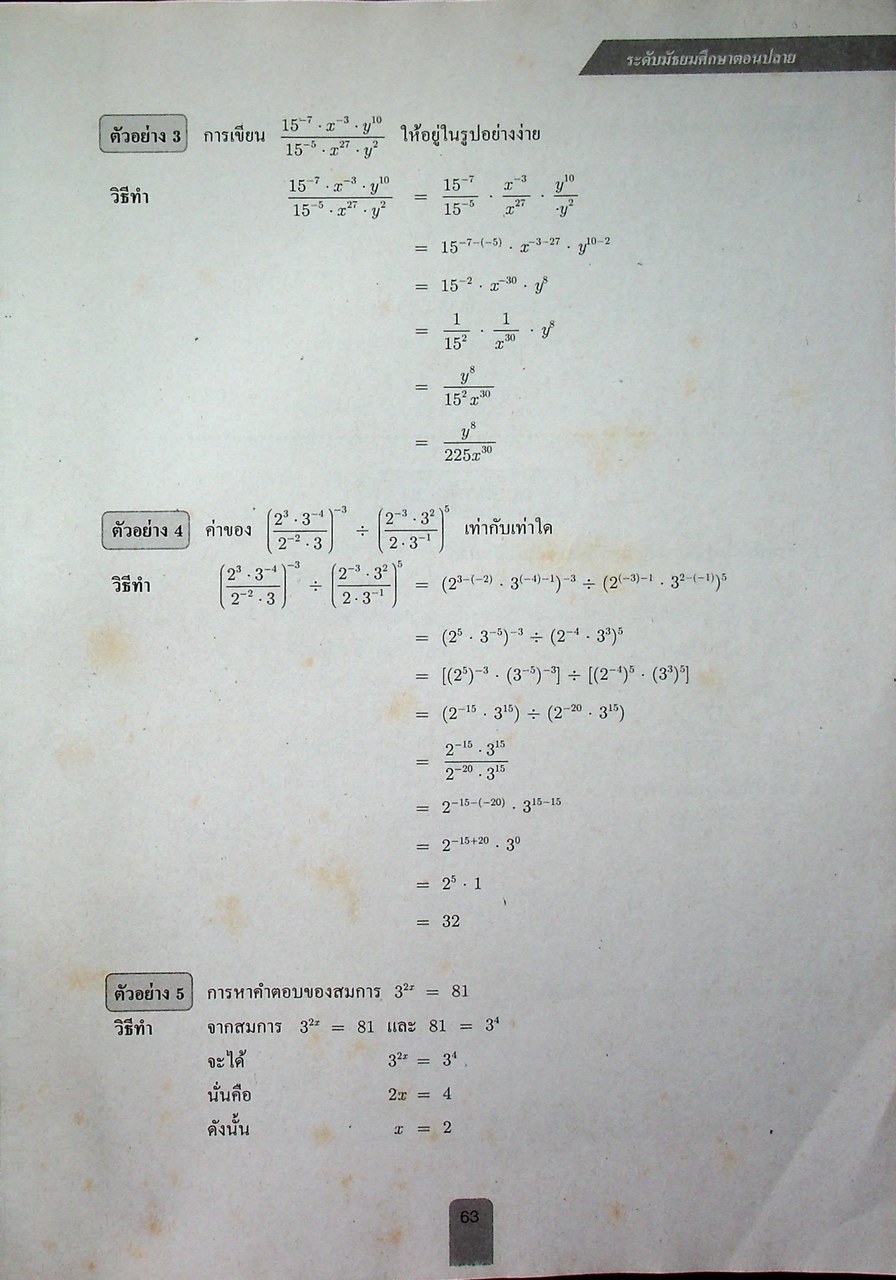 ระดับมัธยมศึกษาตอนปลาย
ตัวอย่าง 3 การเขียน \frac{15^{-7} · x^{-3} · y^{10}}{15^{-5} · x^{27} · y^{2}} ให้อยู่ในรูปอย่างง่าย
วิธีทำ \frac{15^{-7} · x^{-3} · y^{10}}{15^{-5} · x^{27} · y^{2}} = \frac{15^{-7}}{15^{-5}} · \frac{x^{-3}}{x^{27}} · \frac{y^{10}}{·y^{2}}
= 15^{-7-(-5)} · x^{-3-27} · y^{10-2}
= 15^{-2} · x^{-30} · y^{8}
= \frac{1}{15^{2}} · \frac{1}{x^{30}} · y^{8}
= \frac{y^{8}}{15^{2} x^{30}}
= \frac{y^{8}}{225x^{30}}
ตัวอย่าง 4 ค่าของ \left(\frac{2^{3} · 3^{-4}}{2^{-2} · 3}\right)^{-3} ÷ \left(\frac{2^{-3} · 3^{2}}{2 · 3^{-1}}\right)^{5} เท่ากับเท่าใด
วิธีทำ \left(\frac{2^{3} · 3^{-4}}{2^{-2} · 3}\right)^{-3} ÷ \left(\frac{2^{-3} · 3^{2}}{2 · 3^{-1}}\right)^{5} = (2^{3-(-2)} · 3^{(-4)-1})^{-3} ÷ (2^{(-3)-1} · 3^{2-(-1)})^{5}
= (2^{5} · 3^{-5})^{-3} ÷ (2^{-4} · 3^{3})^{5}
= [(2^{5})^{-3} · (3^{-5})^{-3}] ÷ [(2^{-4})^{5} · (3^{3})^{5}]
= (2^{-15} · 3^{15}) ÷ (2^{-20} · 3^{15})
= \frac{2^{-15} · 3^{15}}{2^{-20} · 3^{15}}
= 2^{-15-(-20)} · 3^{15-15}
= 2^{-15+20} · 3^{0}
= 2^{5} · 1
= 32
ตัวอย่าง 5 การหาคำตอบของสมการ 3^{2x} = 81
วิธีทำ จากสมการ 3^{2x} = 81 และ 81 = 3^{4}
จะได้ 3^{2x} = 3^{4}
นั่นคือ 2x = 4
ดังนั้น x = 2
63